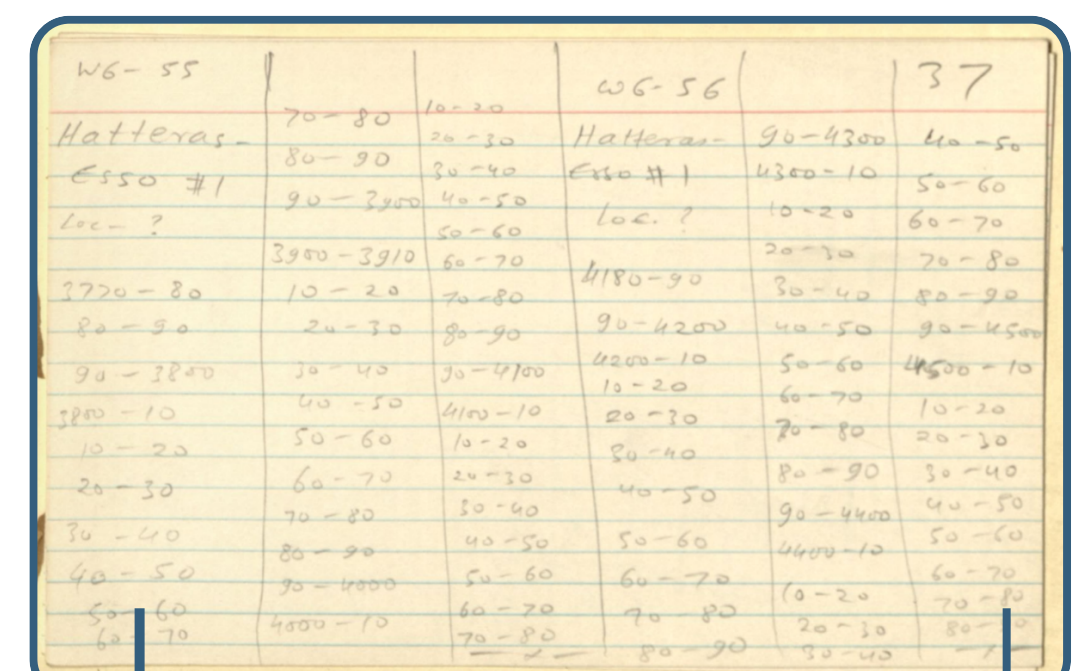 W6-55
Hatteras-
Esso #1
Loc- ?
3770-80
80-90
90-3800
3800-10
10-20
20-30
30-40
40-50
50-60
60-70
70-80
80-90
90-3900
3900-3910
10-20
20-30
30-40
40-50
50-60
60-70
70-80
80-90
90-4000
4000-10
10-20
20-30
30-40
40-50
50-60
60-70
70-80
80-90
90-4100
4100-10
10-20
20-30
30-40
40-50
50-60
60-70
70-80
W6-56
Hatteras-
Esso #1
Loc. ?
4180-90
90-4200
4200-10
10-20
20-30
30-40
40-50
50-60
60-70
70-80
80-90
90-4300
4300-10
10-20
20-30
30-40
40-50
50-60
60-70
70-80
80-90
90-4400
4400-10
10-20
20-30
30-40
37
40-50
50-60
60-70
70-80
80-90
90-4500
4500-10
10-20
20-30
30-40
40-50
50-60
60-70
70-80
80-90